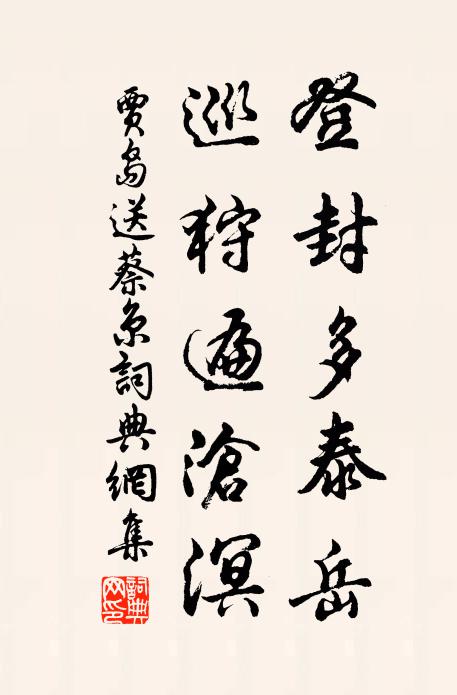 登封多泰岳
巡狩遍滄溟
賈島送蔡京詞典網集
詞典网印